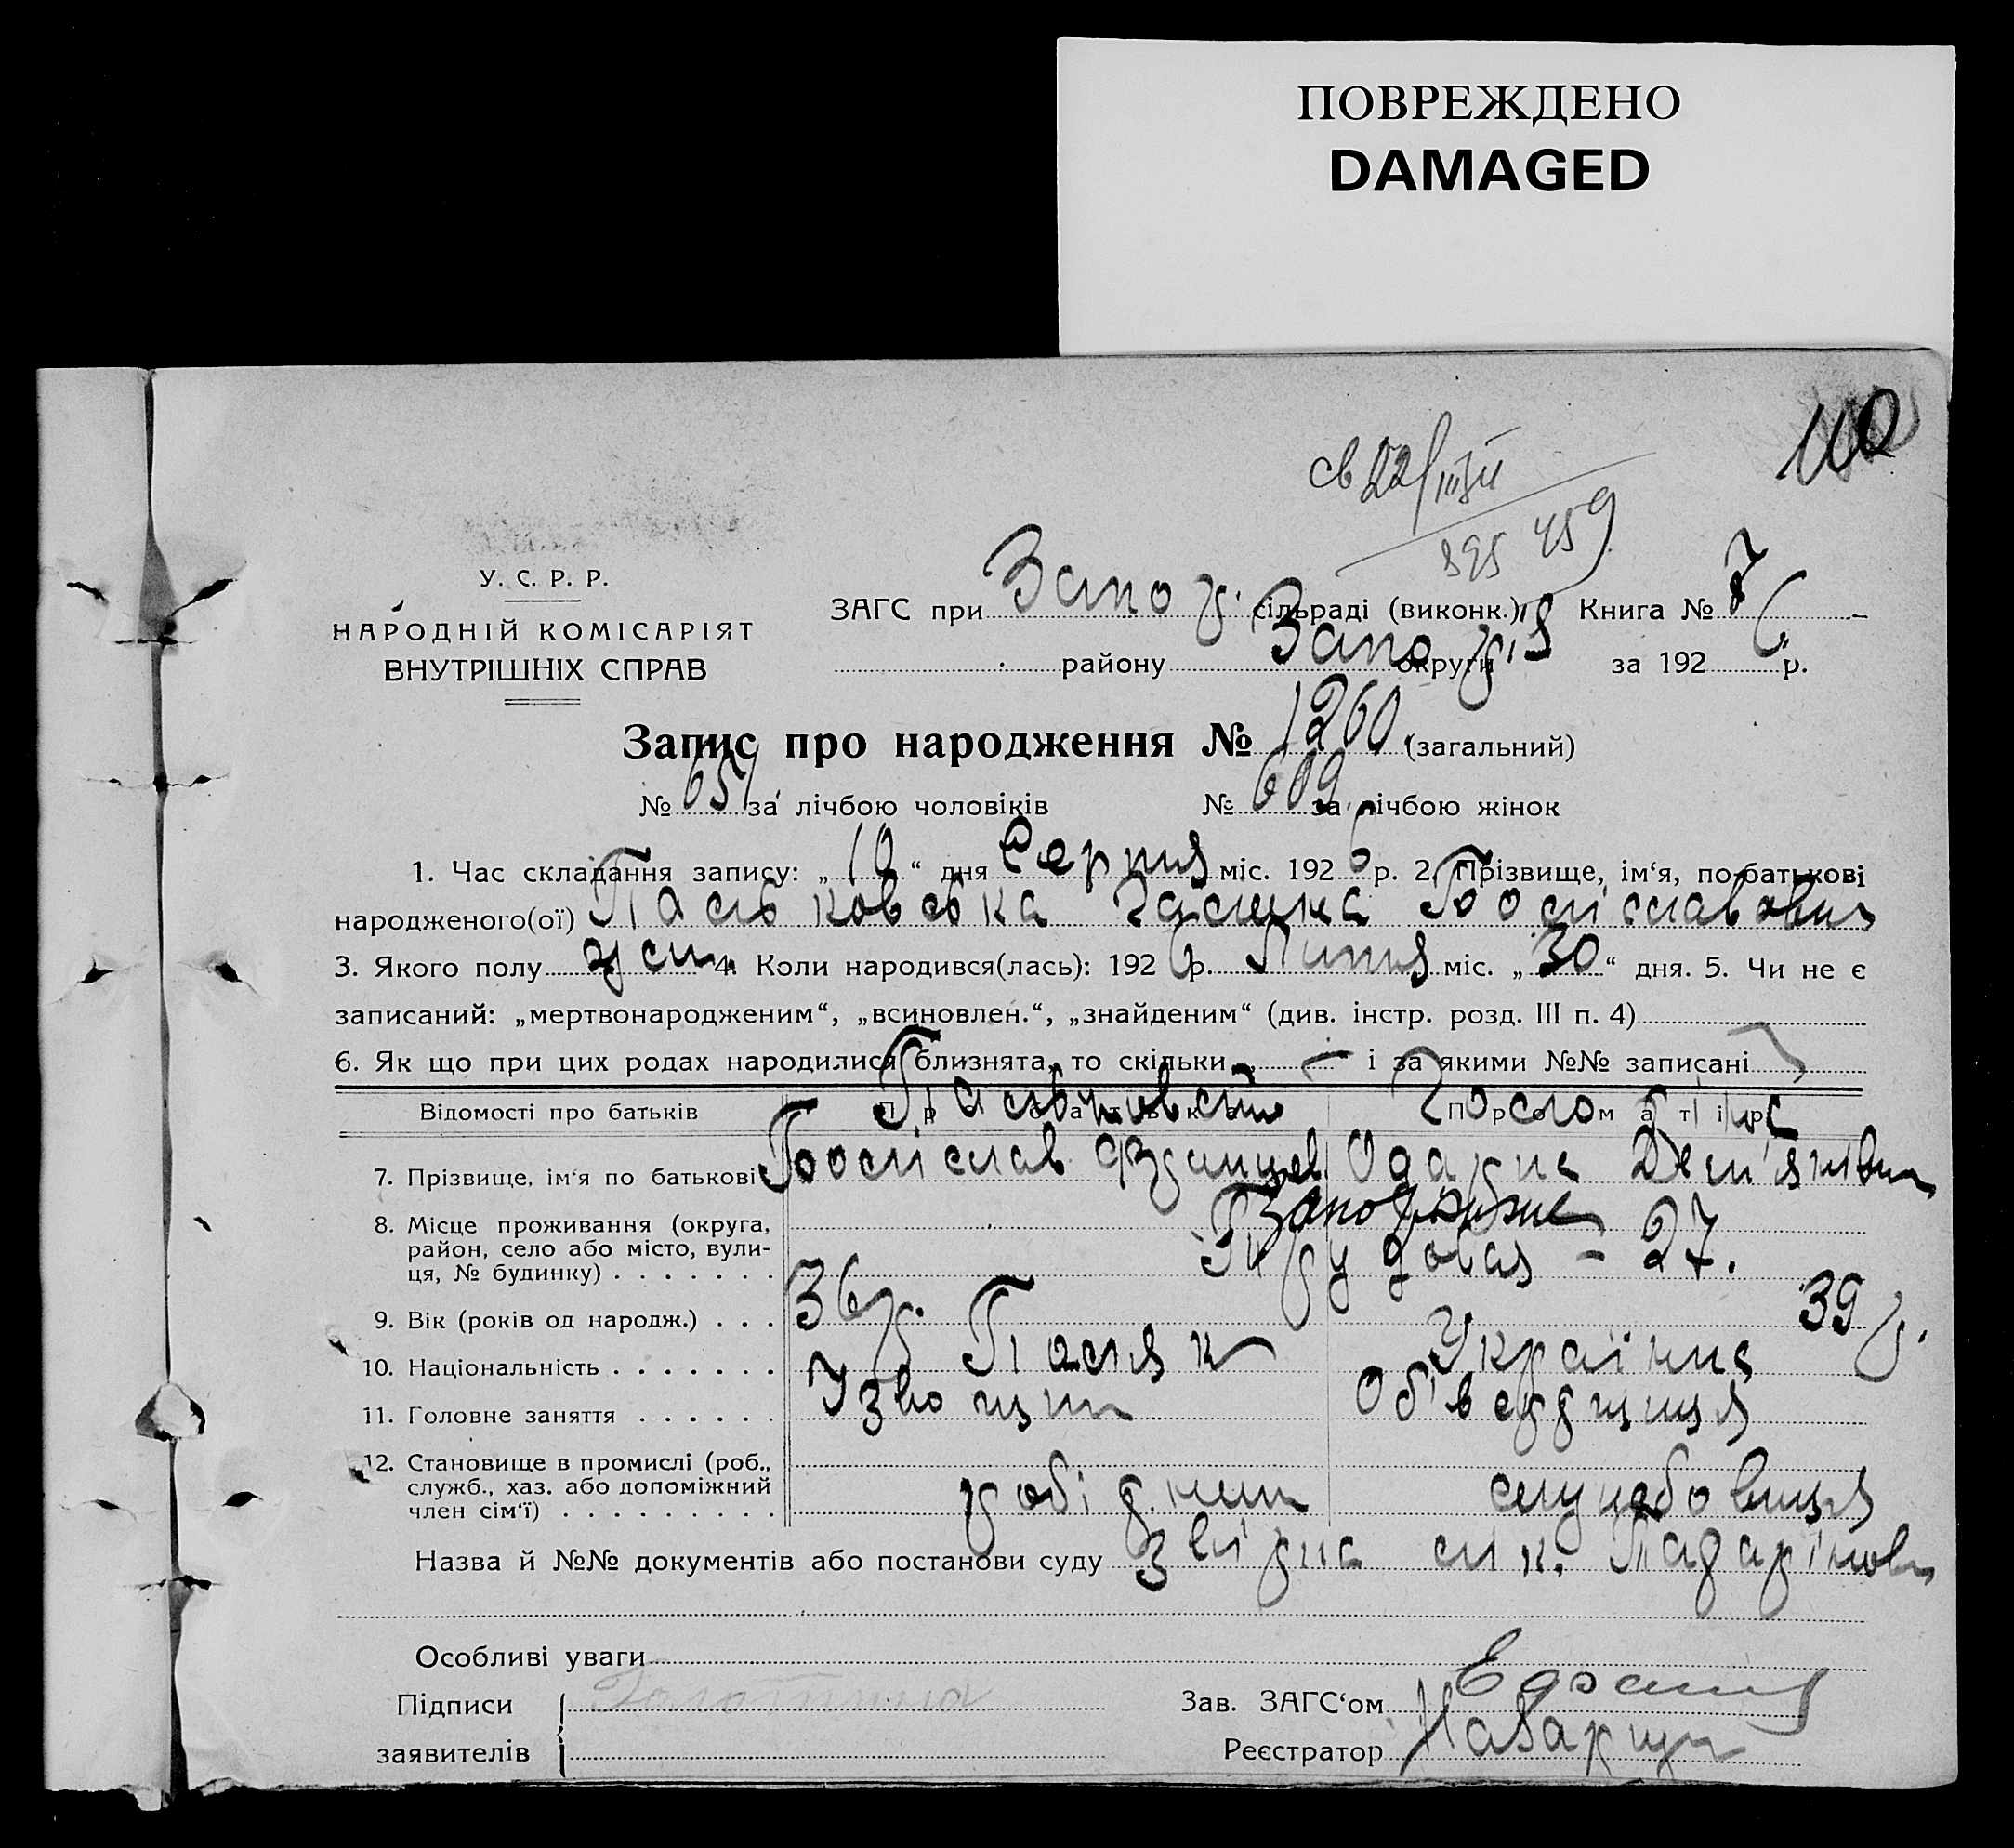 ПОВРЕЖДЕНО
DAMAGED
110
св 22/III
459
У. С. Р. Р.
НАРОДНІЙ КОМІСАРІЯТ
ВНУТРІШНІХ СПРАВ
ЗАГС при Запор. сільраді (виконк.) Книга № 7
району Запор. округи за 1926 р.
Запис про народження № 1260 (загальний)
№ 651 за лічбою чоловіків № 609 за лічбою жінок
1. Час складання запису: „10“ дня Серпня міс. 1926 р. 2. Прізвище, ім‘я, по-батькові
народженого(ої) Паськовська Галина Болі славовна
3. Якого полу жін. 4. Коли народився(лась): 1926 р. Липня міс. „30“ дня. 5. Чи не є
записаний: „мертвонародженим“, „всиновлен.“, „знайденим“ (див. інстр. розд. III п. 4)
6. Як що при цих родах народилися близнята, то скільки — і за якими №№ записані
Відомості про батьків Про батька Про матір
Паськовський
7. Прізвище, ім‘я по батькові Болі слав Францев. Одарка Дем'янівна
8. Місце проживання (округа, Запоріжжє
район, село або місто, вули- Трудовая - 27.
ця, № будинку)
9. Вік (років од народж.) 36 р. 39 р.
10. Національність Поляк Українка
11. Головне заняття Ізвощик Об'їздчиця
12. Становище в промислі (роб.,
служб., хаз. або допоміжний робідник службовиця
член сім‘ї)
Назва й №№ документів або постанови суду звірка
Особливі уваги
Підписи
заявителів
Зав. ЗАГС‘ом
Реєстратор